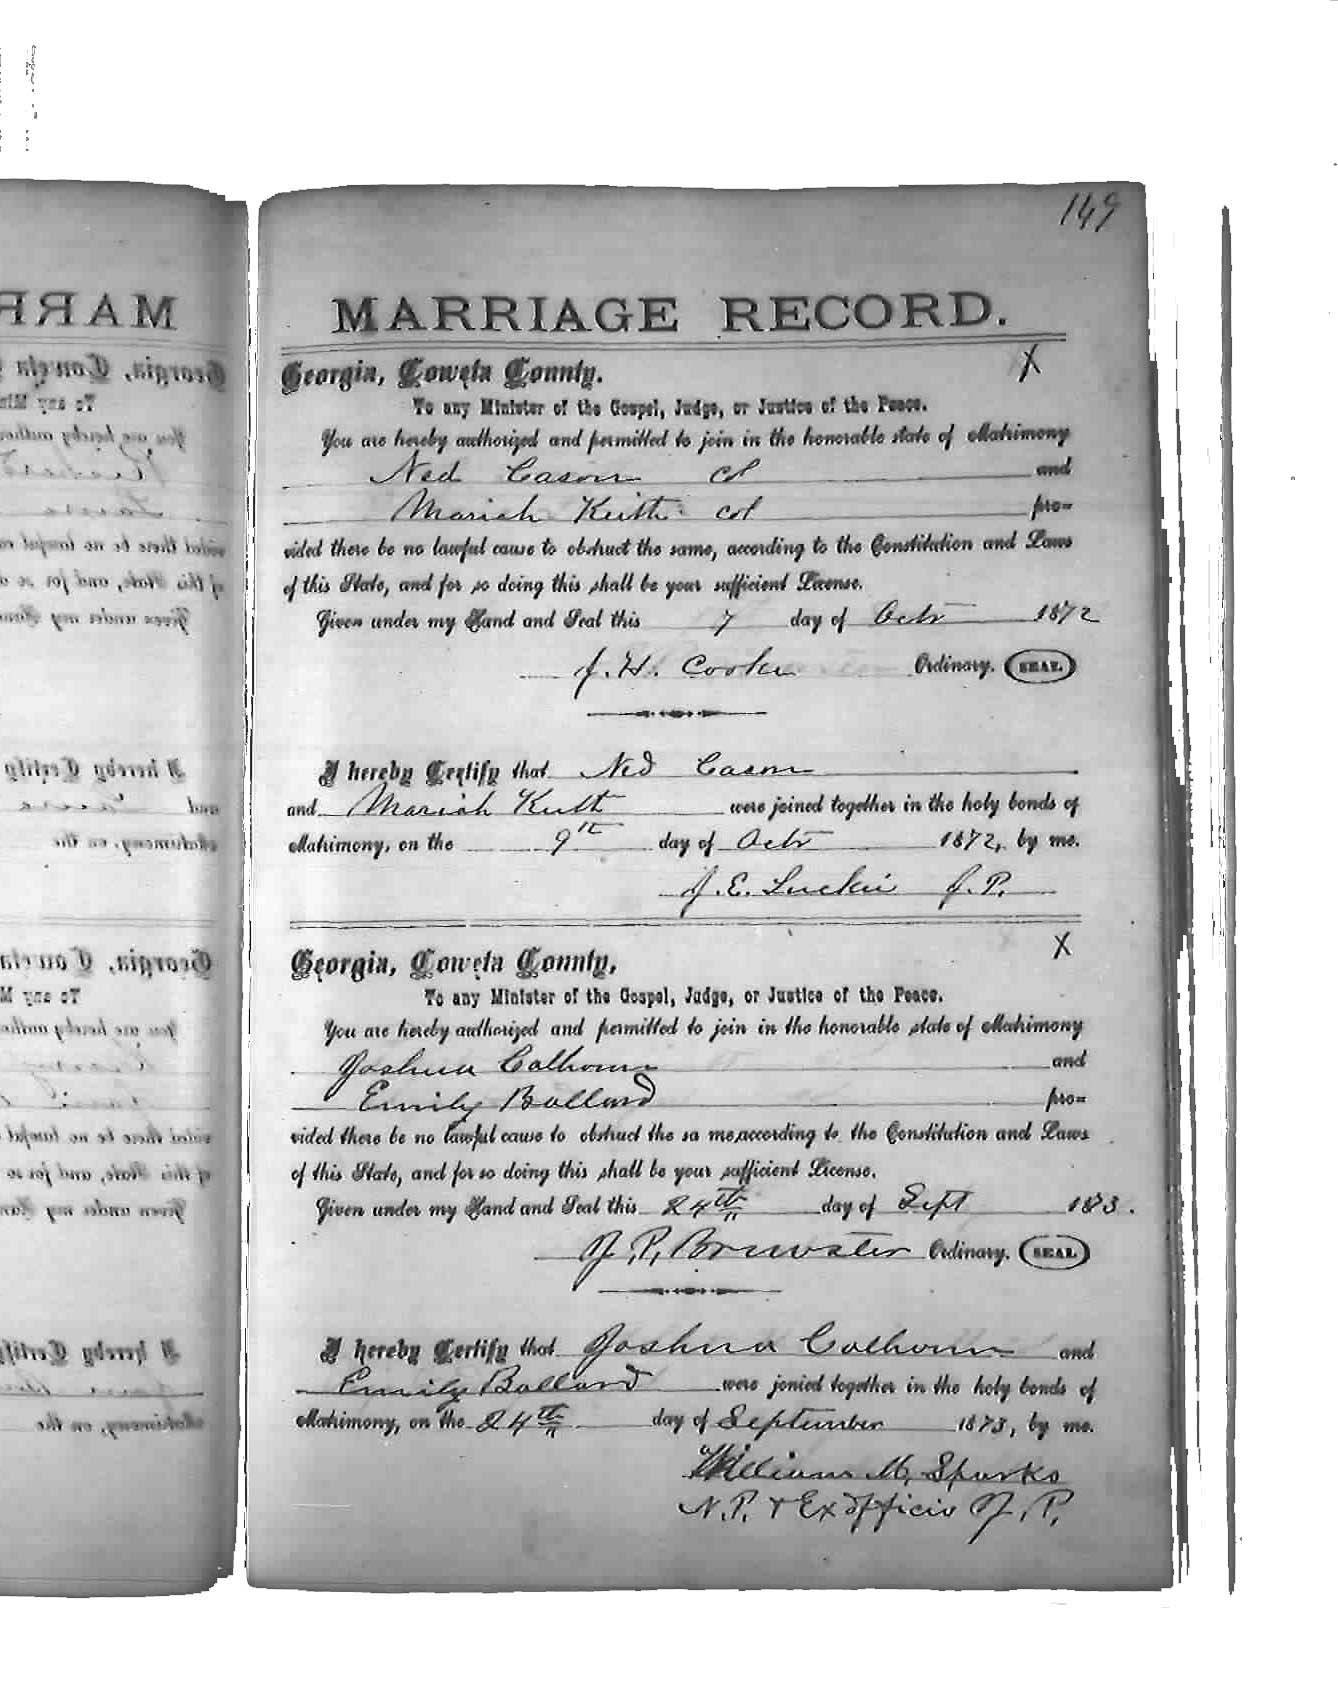 149
MARRIAGE RECORD.
Georgia, Coweta County.
X
To any Minister of the Gospel, Judge, or Justice of the Peace.
You are hereby authorized and permitted to join in the honorable state of Matrimony
Ned Cason col and
Mariah Keith col pro=
vided there be no lawful cause to obstruct the same, according to the Constitution and Laws
of this State, and for so doing this shall be your sufficient License.
Given under my Hand and Seal this 7 day of Octr 1872
J. H. Cooke Ordinary. SEAL
I hereby Certify that Ned Cason
and Mariah Keith were joined together in the holy bonds of
Matrimony, on the 9th day of Octr 1872, by me.
J. E. Luckie J. P.
Georgia, Coweta County,
X
To any Minister of the Gospel, Judge, or Justice of the Peace.
You are hereby authorized and permitted to join in the honorable state of Matrimony
Joshua Calhoun and
Emily Ballard pro=
vided there be no lawful cause to obstruct the sa me,according to the Constitution and Laws
of this State, and for so doing this shall be your sufficient License.
Given under my Hand and Seal this 24th day of Sept 1873.
J. P. Brewster Ordinary. SEAL
I hereby Certify that Joshua Calhoun and
Emily Ballard were jonied together in the holy bonds of
Matrimony, on the 24th day of September 1873, by me.
William M. Sparks
N. P. & Ex officio J. P.